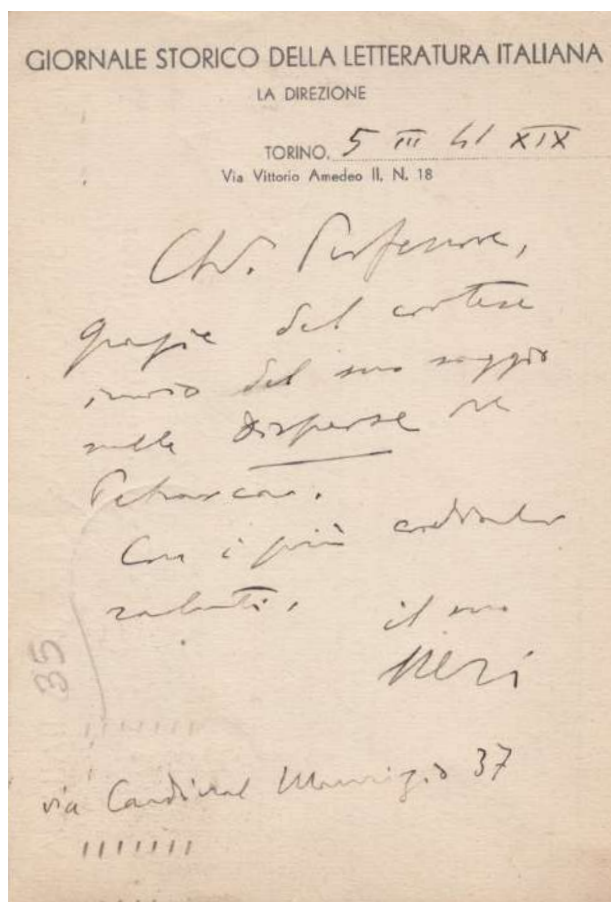 GIORNALE STORICO DELLA LETTERATURA ITALIANA
LA DIREZIONE
TORINO, 5 III 41 XIX
Via Vittorio Amedeo II, N. 18
Professore,
grazie del cortese
invio del suo saggio
sulle disperse del
Petrarca.
Con i più cordiali
saluti, il suo
Neri
35
via Cardinal Maurizio 37